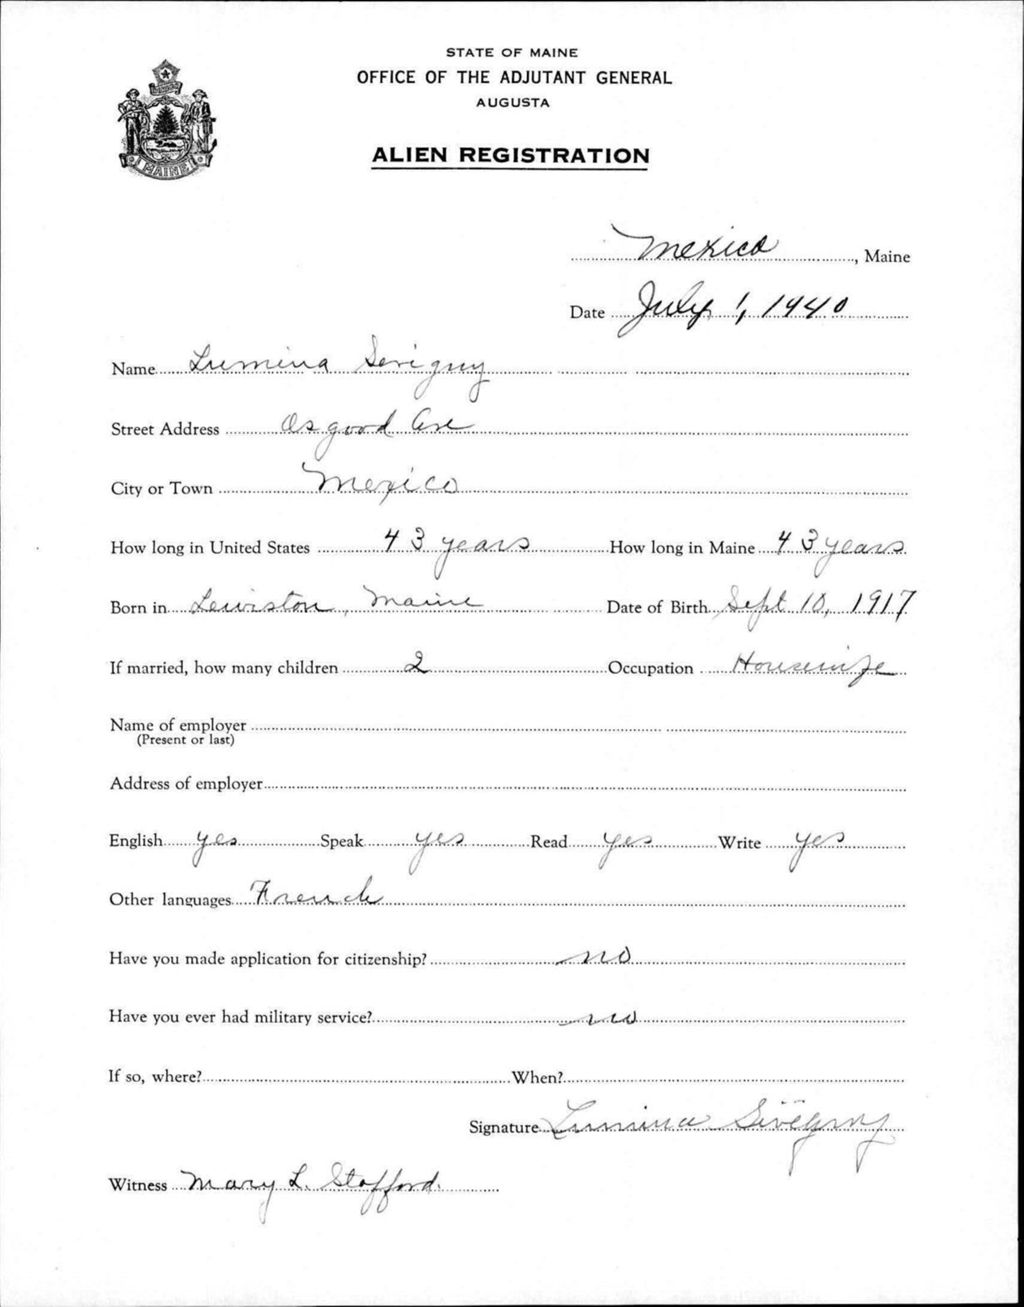 STATE OF MAINE
OFFICE OF THE ADJUTANT GENERAL
AUGUSTA
ALIEN REGISTRATION
MAINE
Mexico, Maine
Date July 1, 1940
Name Lumina Sevigny
Street Address Osgood Ave
City or Town Mexico
How long in United States 43 years How long in Maine 43 years
Born in Lewiston, Maine Date of Birth Sept 10, 1917
If married, how many children 2 Occupation Housewife
Name of employer
(Present or last)
Address of employer
English yes Speak yes Read yes Write yes
Other languages French
Have you made application for citizenship? no
Have you ever had military service? no
If so, where? When?
Signature Lumina Sivégny
Witness Mary L. Stafford.